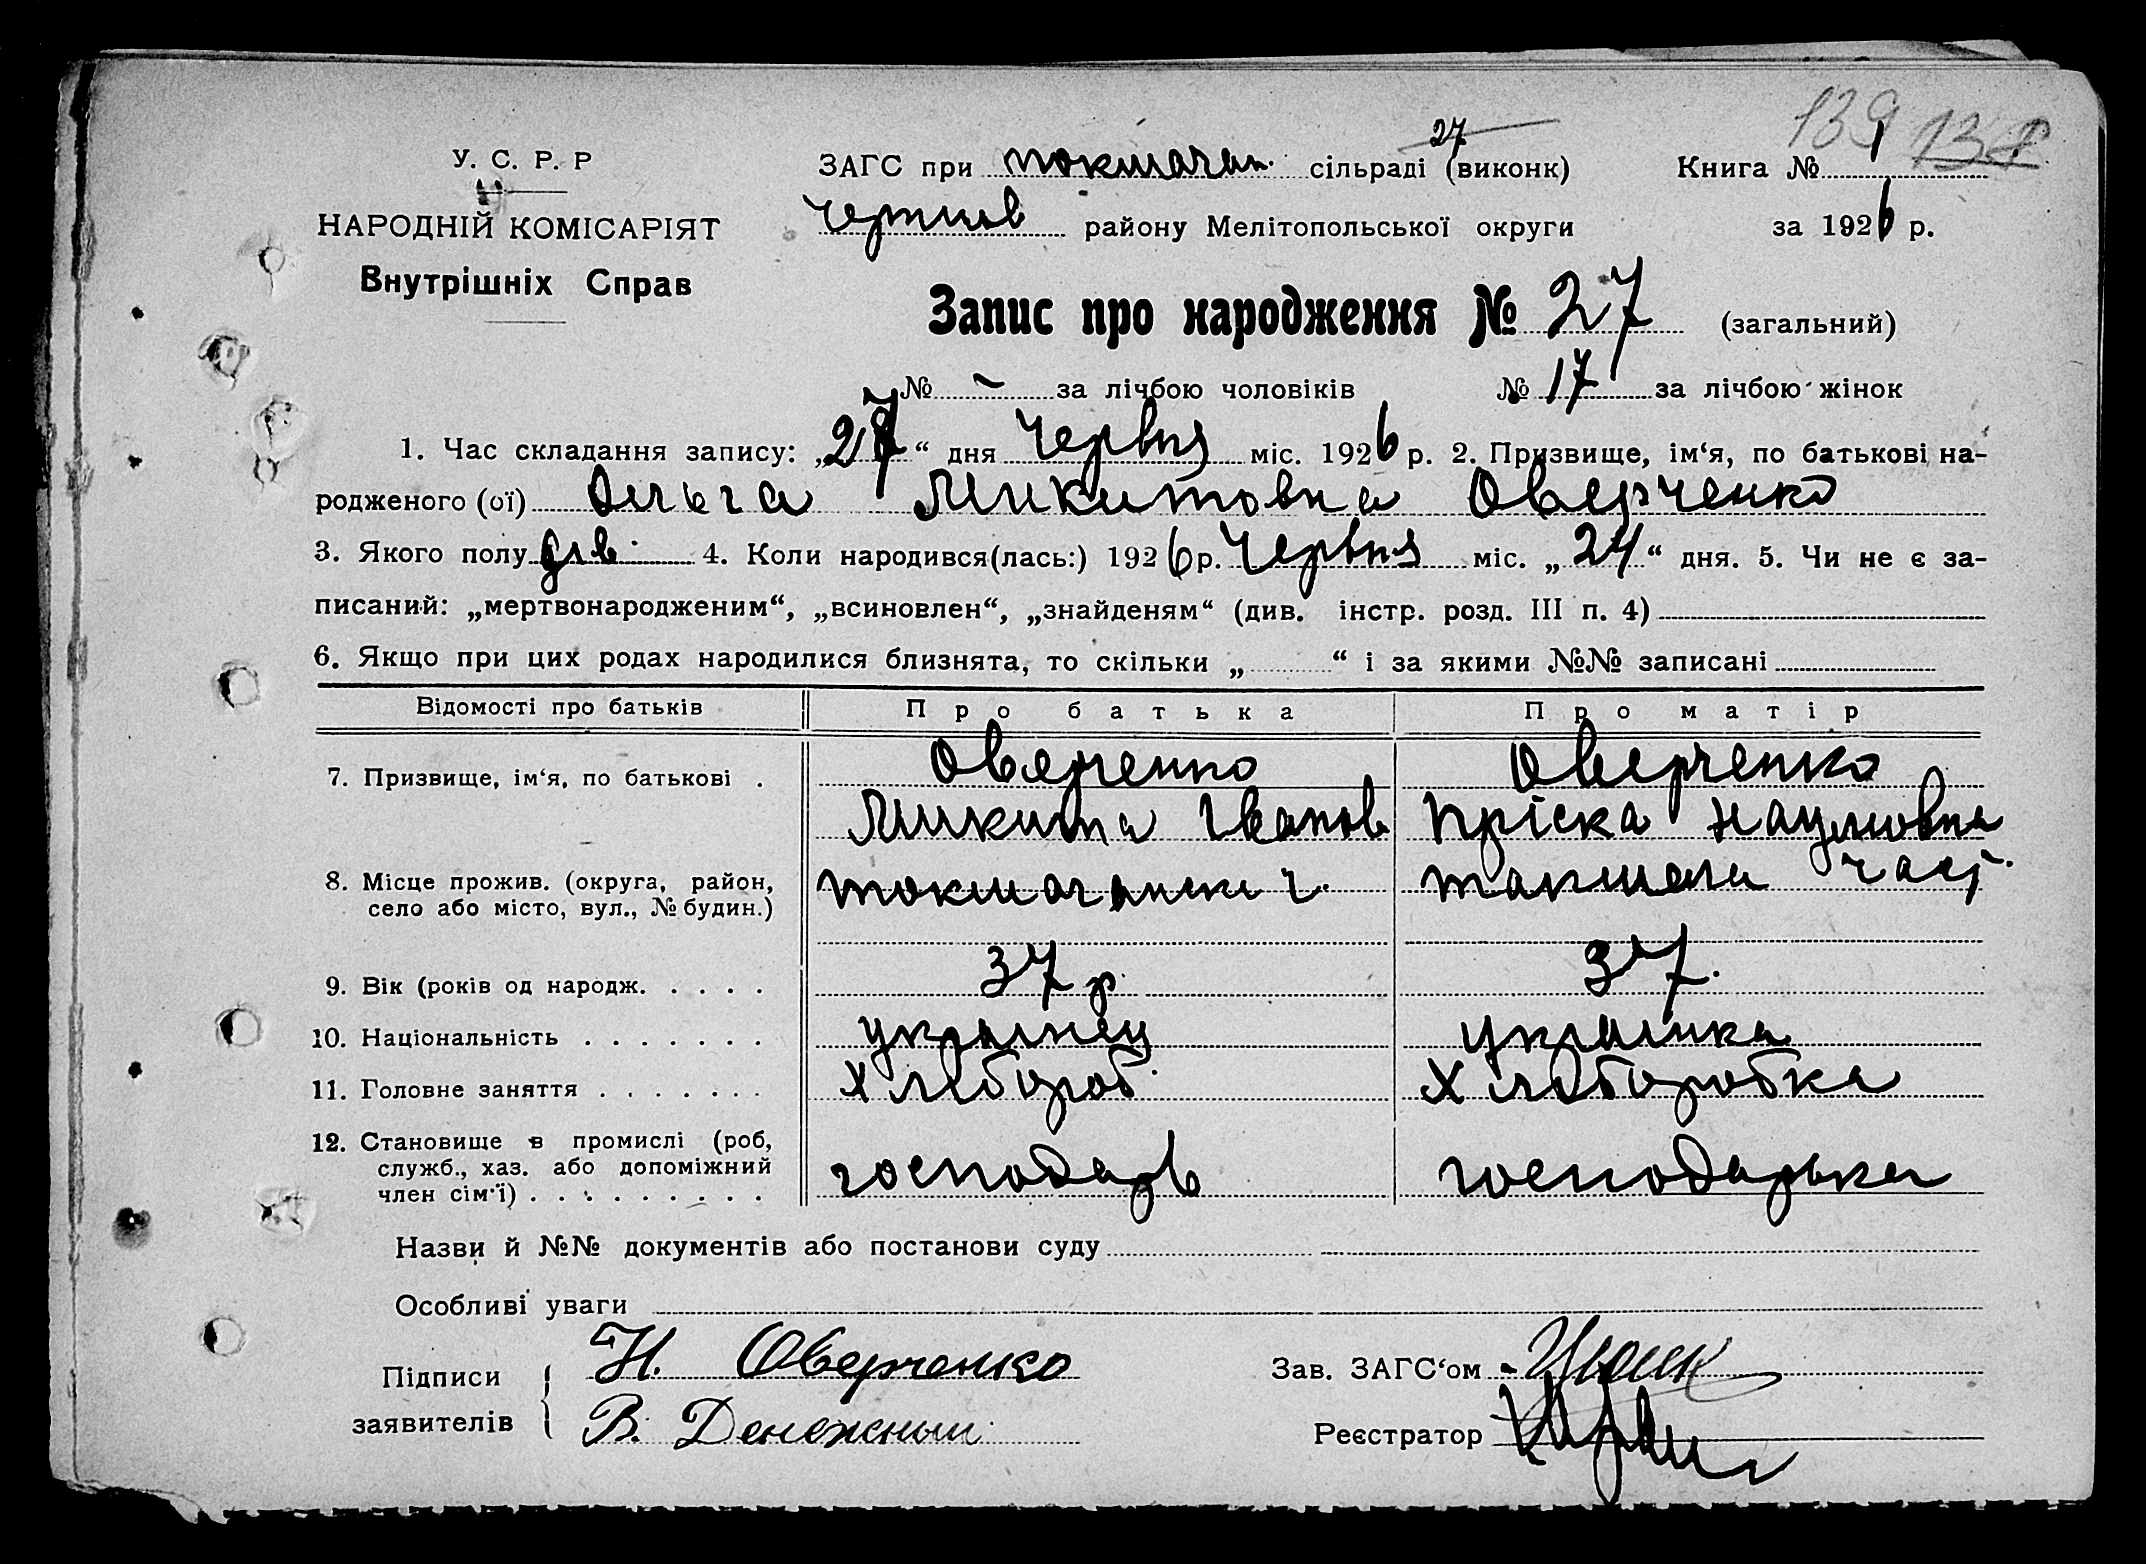 139 138
27
У. С. Р. Р
ЗАГС при токмачан. сільраді (виконк)
Книга № 1
НАРОДНІЙ КОМІСАРІЯТ
району Мелітопольської округи
за 1926 р.
Внутрішніх Справ
Запис про народження № 27 (загальний)
№ - за лічбою чоловіків № 17 за лічбою жінок
1. Час складання запису: „27“ дня Червня міс. 1926 р. 2. Призвище, ім‘я, по батькові на-
родженого (ої) Ольга Микитовна Оверченко
3. Якого полу дів. 4. Коли народився(лась:) 1926 р. Червня міс. „24“ дня. 5. Чи не є за-
писаний: „мертвонародженим“, „всиновлен“, „знайденям“ (див. інстр. розд. III п. 4)
6. Якщо при цих родах народилися близнята, то скільки „ “ і за якими №№ записані
Відомості про батьків Про батька Про матір
7. Призвище, ім‘я, по батькові . Оверченко Оверченко
Микита Іванов Пріска Наумовна
8. Місце прожив. (округа, район,
село або місто, вул., № будин.)
9. Вік (років од народж. . . . . 37 р 37.
10. Національність . . . . . . . українец українка
11. Головне заняття . . . . . . . хлібороб. хліборобка
12. Становище в промислі (роб,
служб., хаз. або допоміжний
член сім‘ї) . . . . . . . . . господарь господарька
Назви й №№ документів або постанови суду
Особливі уваги
Підписи Н. Оверченко Зав. ЗАГС‘ом
заявителів В. Денежный Реєстратор